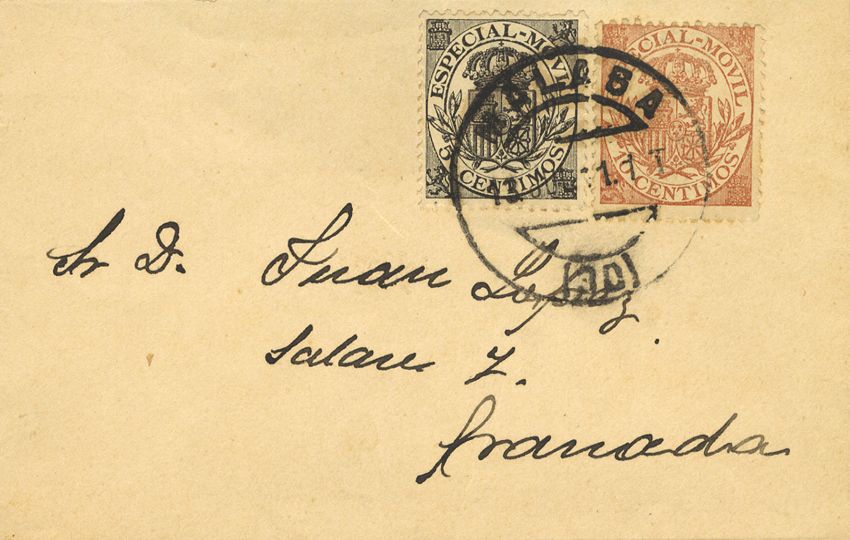 ESPECIAL-MOVIL
5 CENTIMOS
ESPECIAL-MOVIL
10 CENTIMOS
MALAGA
Sr D. Juan Lopez
Salare 7.
Granada